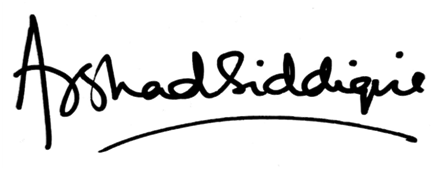 Arshad Siddiquie